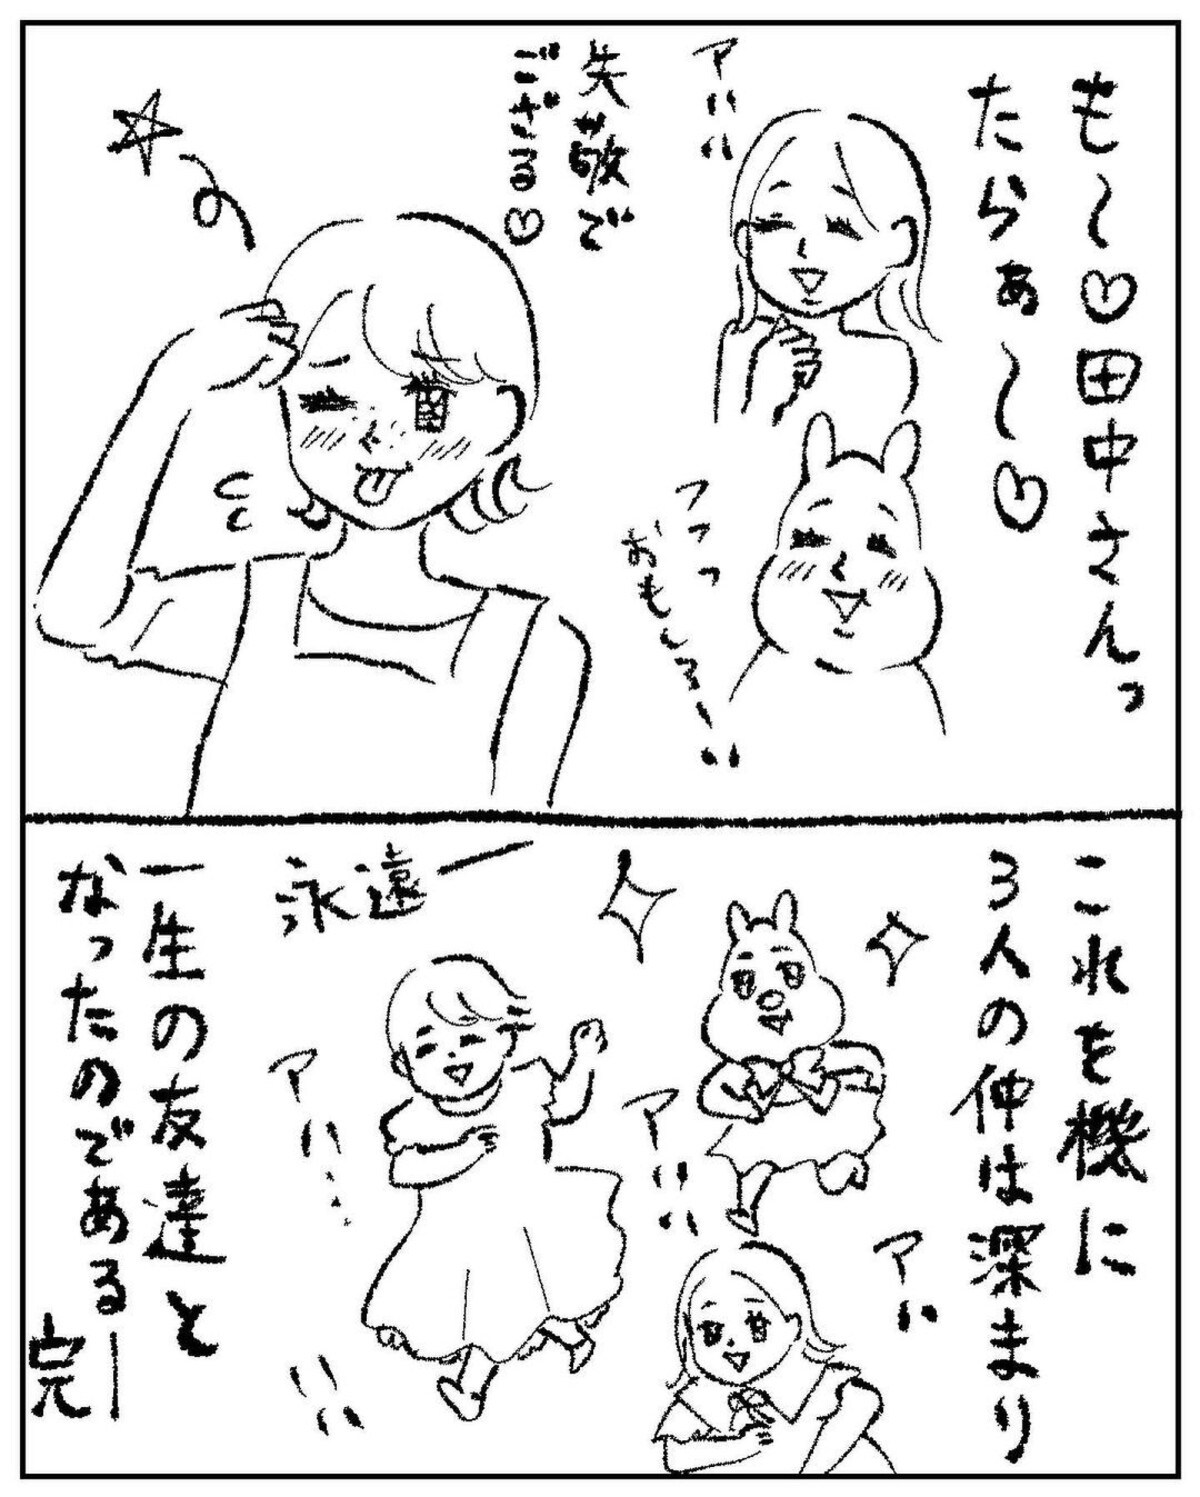 も〜♡田中さんっ
たらぁ〜♡
アハハ
フフっ
おもしろーい
失敬で
ござる♡
これを機に
3人の仲は深まり
アハ
アハハ
永遠ー
アハ…
ハハ
一生の友達と
なったのであるー
完